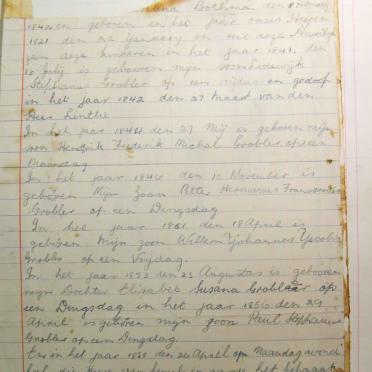 Bothma, den 8 February
1842 en geboren en het jaar onses Heeren
1821 den 22 January en uit deze Huwelijk
zijn deze kinderen in het jaar 1841, den
10 is geboren mijn zoon
Stephanus Grobler op een vrijdag en gedoop
in het jaar 1842 den 27 Maart van den
Heer
In het jaar den 27 Mij is geboren mijn
soon Hendrik Frederik Michal Groobler op een
Maandag
In het jaar 1846 den 10 November is
geboren Mijn Zoon Petter Hermanus
Grobler op een Dingsdag
In het jaar 1851 den 18 April is
geboren Mijn zoon Willem Yohannes Yacobus
Grobler op een Vrijdag.
In het jaar 1853 den 23 Augustas is gebooren
mijn Dochter Elisabet Susana Groblaar op
een Dingsdag in het jaar 1856 den 29
April is geboren mijn zoon Paul Stephanus
Grobler op een Dingsdag.
En in het jaar den 26 April op Maandag avond
de Heere het behaagh